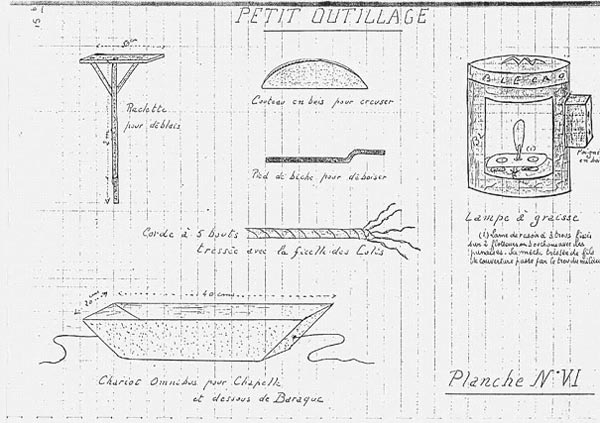 PETIT OUTILLAGE
50cm
Raclette
pour déblais
2m
Couteau en bois pour creuser
Pied de biche pour déboiser
BLECAO
(1)
Poignée
en bois
Lampe à graisse
(1) Lame de rasoir à 3 trous fixée
sur 2 flotteurs en bochon avec des
punaises. La mèche tressée de fils
de couverture passe par le trou du milieu
Corde à 5 bouts
tressée avec la ficelle des Colis
20cm
40 cm
Chariot Omnibus pour Chapelle
et dessous de Baraque
Planche N° VI